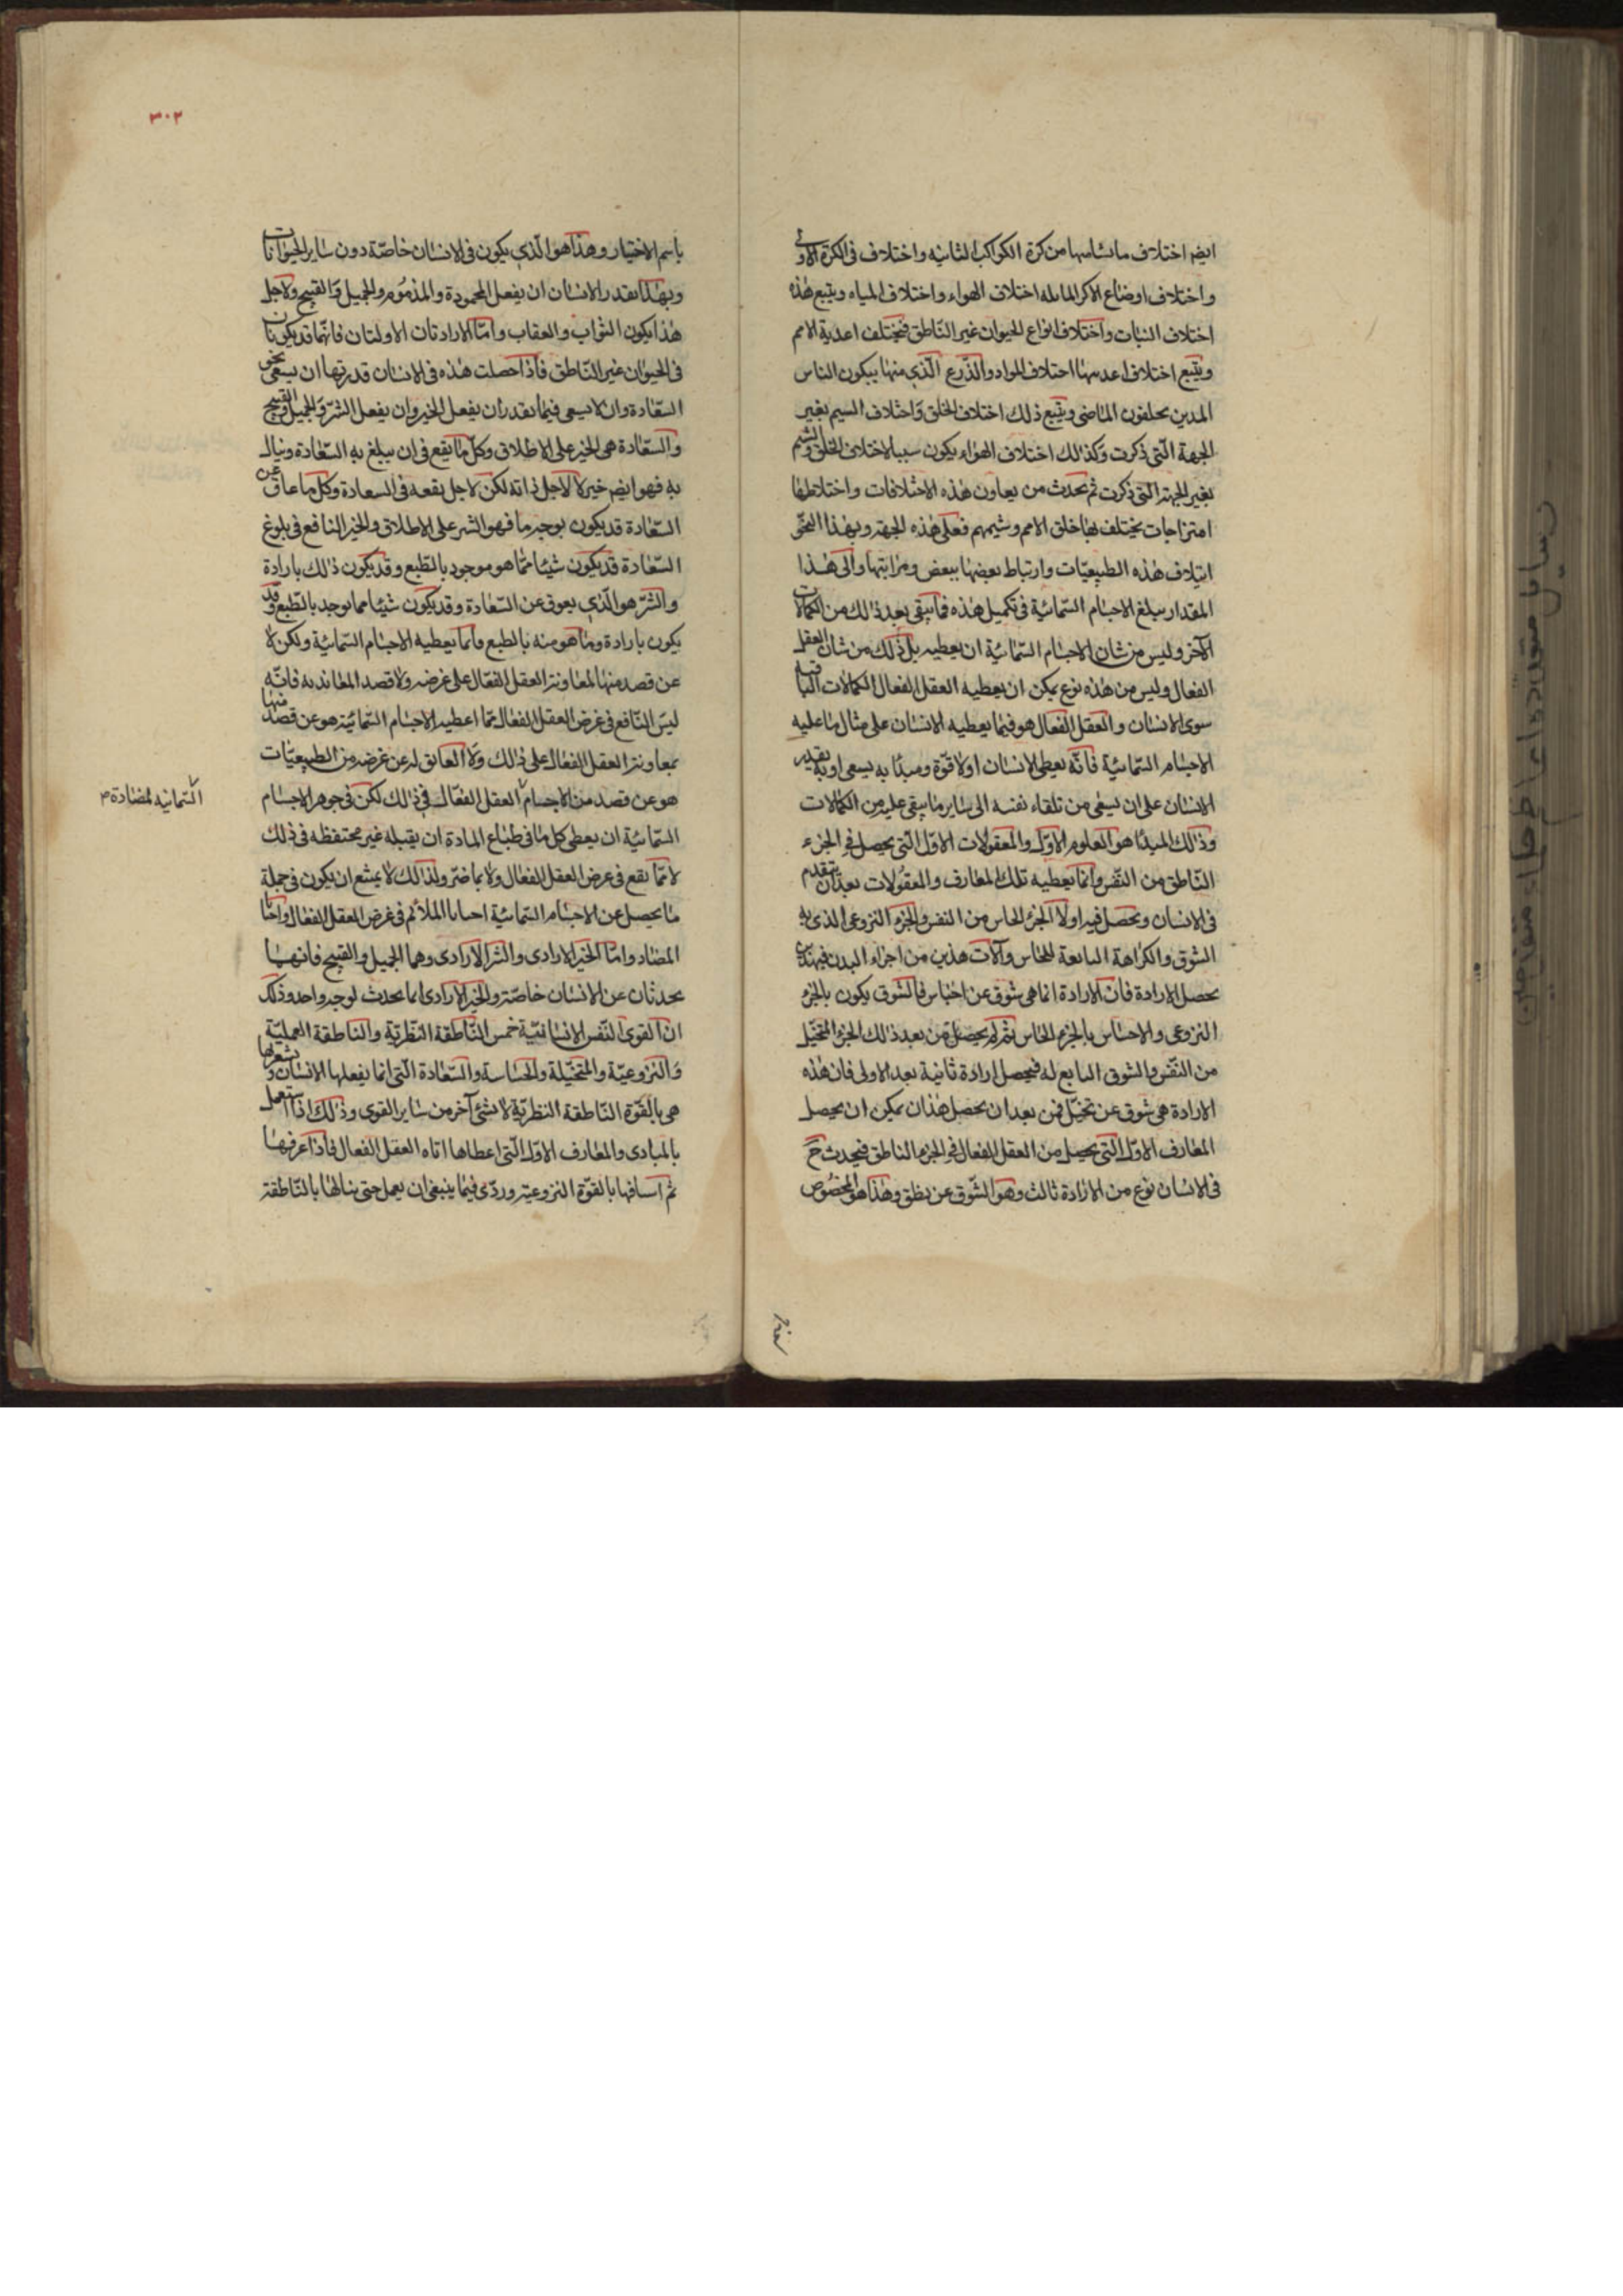 ايضا اختلاف ما يسامتها من كرة الكواكب الثانية واختلاف فى الكرة الاولى
واختلاف اوضاع الاكر المايله اختلاف الهواء واختلاف المياه ويتبع هذه
اختلاف النبات واختلاف انواع الحيوان غير الناطق فيختلف اعدية الامم
ويتبع اختلاف اعديتها اختلاف المواد والذرع الّذي منها يتكون الناس
المدين يخلفون الماضى ويتبع ذلك اختلاف الخلق واختلاف السيم بغير
الجهة الّتى ذكرت وكذلك اختلاف الهواء يكون سببا لاختلاف الخلق والشيم
بغير الجهة الّتى ذكرت ثم يحدث من تعاون هذه الاختلافات واختلاطها
امتزاجات يختلف بها خلق الامم وشيمهم فعلى هذه الجهة وبهذا النحو
ايتلاف هذه الطبيعيّات وارتباط بعضها ببعض ومراتبها والى هذا
المقدار يبلغ الاجسام السّمائيّة فى تكميل هذه فما يبقى بعد ذلك من الكمالات
الآخر وليس من شان الاجسام السّمائيّة ان يعطيه بل ذلك من شان العقل
الفعال وليس من هذه نوع يمكن ان يعطيه العقل الفعال الكمالات الباقية
سوى الانسان والعقل الفعال هو فيما يعطيه الانسان على مثال ما عليه
الاجسام السّمائيّة فانّه يعطى الانسان اولا قوّة ومبدئا به يسعى او به يقدر
الانسان على ان يسعى من تلقاء نفسه الى ساير ما يبقى عليه من الكمالات
وذلك المبدئا هو العلوم الاوّل والمعقولات الاوّل الّتى يحصل في الجزء
النّاطق من النّفس وانّما يعطيه تلك المعارف والمعقولات بعد ان يتقدم
فى الانسان ويحصل فيه اولا الجزء الحاس من النفس والجزء النزوعى الذى به
الشوق والكراهة التابعة للحاس وآلات هذين من اجزاء البدن فبهذين
يحصل الارادة فانّ الارادة انما هى شوق عن احساس فالشوق يكون بالجزء
النزوعى والاحساس بالجزء الحاس ثم يحصل من بعد ذلك الجزء المتخيّل
من النّفس والشوق التابع له فيحصل ارادة ثانية بعد الاولى فان هذه
الارادة هى شوق عن تخيّل فمن بعد ان يحصل هذان يمكن ان يحصل
المعارف الاوّل الّتى يحصل من العقل الفعال في الجزء الناطق فيحدث ح
فى الانسان نوع من الارادة ثالث وهو الشّوق عن نطق وهذا هو المخصوص
٣٠٢
باسم الاختيار وهذا هو الّذي يكون فى الانسان خاصّة دون ساير الحيوانات
وبهذا يقدر الانسان ان يفعل المحمودة والمذموم والجميل والقبيح ولاجل
هذا يكون الثواب والعقاب وامّا الارادتان الاولتان فانّهما قد يكونان
فى الحيوان غير النّاطق فاذا حصلت هذه فى الانسان قدر بها ان يسعى نحو
السّعادة وان لا يسعى فيما يقدر ان يفعل الخير وان يفعل الشرّ والجميل والقبيح
والسّعادة هى الخير على الاطلاق وكلّ ما يقع فى ان يبلغ به السّعادة وينال
به فهو ايضا خير لا لاجل ذاته لكن لاجل نفعه فى السعادة وكل ما عاق عن
السّعادة قد يكون بوجه ما فهو الشر على الاطلاق والخير النافع فى بلوغ
السّعادة قد يكون شيئا ممّا هو موجود بالطّبع وقد يكون ذلك بارادة
والشرّ هو الّذي يعوق عن السّعادة وقد يكون شيئا مما يوجد بالطّبع وقد
يكون بارادة وما هو منه بالطبع فانّما يعطيه الاجسام السّمائيّة ولكن لا
عن قصد منها لمعاونة العقل الفعّال على غرضه ولا قصد المعاندة فانّه
ليس النّافع فى غرض العقل الفعّال ممّا اعطيه الاجسام السّمائيّة هو عن قصد منها
بمعاونة العقل الفعّال على ذلك ولا العائق له عن غرضه من الطبيعيّات
هو عن قصد من الاجسام العقل الفعّال فى ذلك لكن فى جوهر الاجسام
السّمائيّة لمضادة
السّمائيّة ان يعطى كل ما فى طباع المادة ان يقبله غير محتفظه فى ذلك
لا بمّا يقع فى غرض العقل الفعّال ولا بما ضر ولذلك لا يمتنع ان يكون فى جملة
ما يحصل عن الاجسام السّمائيّة احيانا الملائم فى غرض العقل الفعّال واحيانا
المضاد وامّا الخير الارادى والشر الارادى وهما الجميل والقبيح فانهما
يحدثان عن الانسان خاصّة والخير الارادى انما يحدث لوجه واحد وذلك
انّ القوى النّفس الانسانيّة خمس النّاطقة النّظريّة والناطقة العمليّة
والنزوعيّة والمتخيّلة والحساسة والسّعادة الّتى انما يفعلها الانسان ويشعر بها
هى بالقوّة النّاطقة النظريّة لا بشئ آخر من ساير القوى وذلك اذا استعمل
بالمبادى والمعارف الاوّل الّتى اعطاها اتاه العقل الفعال فاذا عرفها
ثم اساقها بالقوّة النزوعيّة وردّى فيما ينبغى ان يعمل حتى ينالها بالنّاطقة